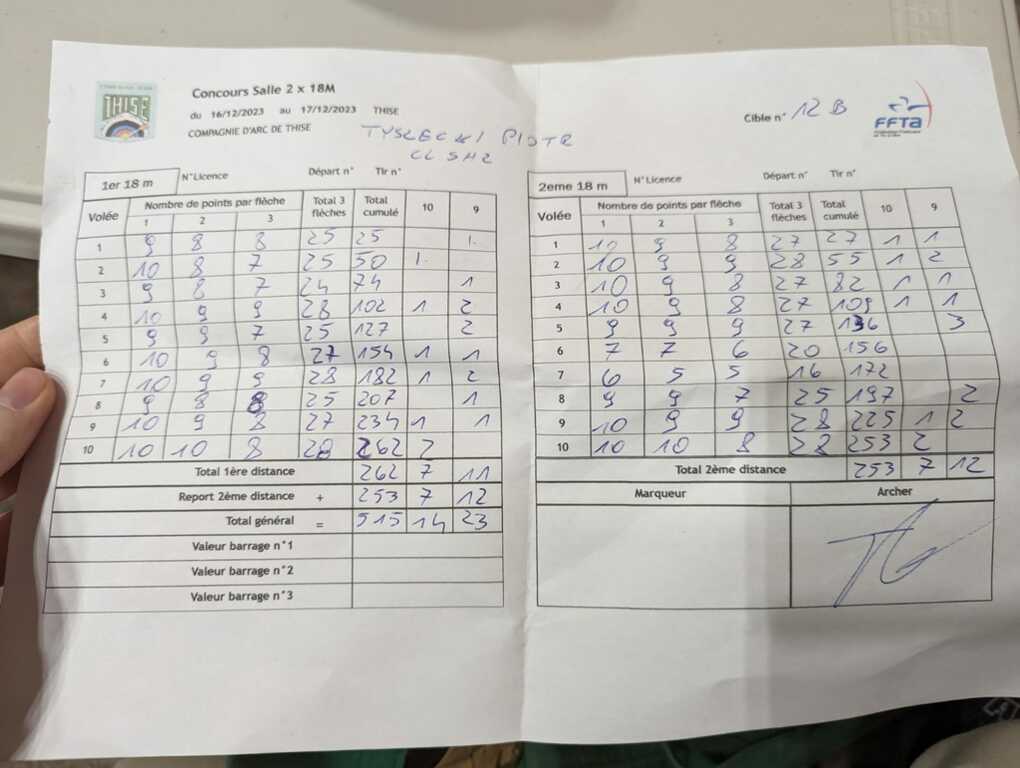 THISE
Concours Salle 2 x 18M
du 16/12/2023 au 17/12/2023 THISE
COMPAGNIE D'ARC DE THISE
TYSLECKI PIOTR
CL SH2
Cible n° 12 B
FFTa
1er 18 m N°Licence Départ n° Tir n°
Volée Nombre de points par flèche Total 3 flèches Total cumulé 10 9
1 2 3
1 9 8 8 25 25 1
2 10 8 7 25 50 1
3 9 8 7 24 74 1
4 10 9 9 28 102 1 2
5 9 9 7 25 127 2
6 10 9 8 27 154 1 1
7 10 9 9 28 182 1 2
8 9 8 8 25 207 1
9 10 9 8 27 234 1 1
10 10 10 8 28 262 2
Total 1ère distance 262 7 11
Report 2ème distance + 253 7 12
Total général = 515 14 23
Valeur barrage n°1
Valeur barrage n°2
Valeur barrage n°3
2eme 18 m N°Licence Départ n° Tir n°
Volée Nombre de points par flèche Total 3 flèches Total cumulé 10 9
1 2 3
1 10 9 8 27 27 1 1
2 10 9 9 28 55 1 2
3 10 9 8 27 82 1 1
4 10 9 8 27 109 1 1
5 9 9 9 27 136 3
6 7 7 6 20 156
7 6 5 5 16 172
8 9 9 7 25 197 2
9 10 9 9 28 225 1 2
10 10 10 8 28 253 2
Total 2ème distance 253 7 12
Marqueur Archer